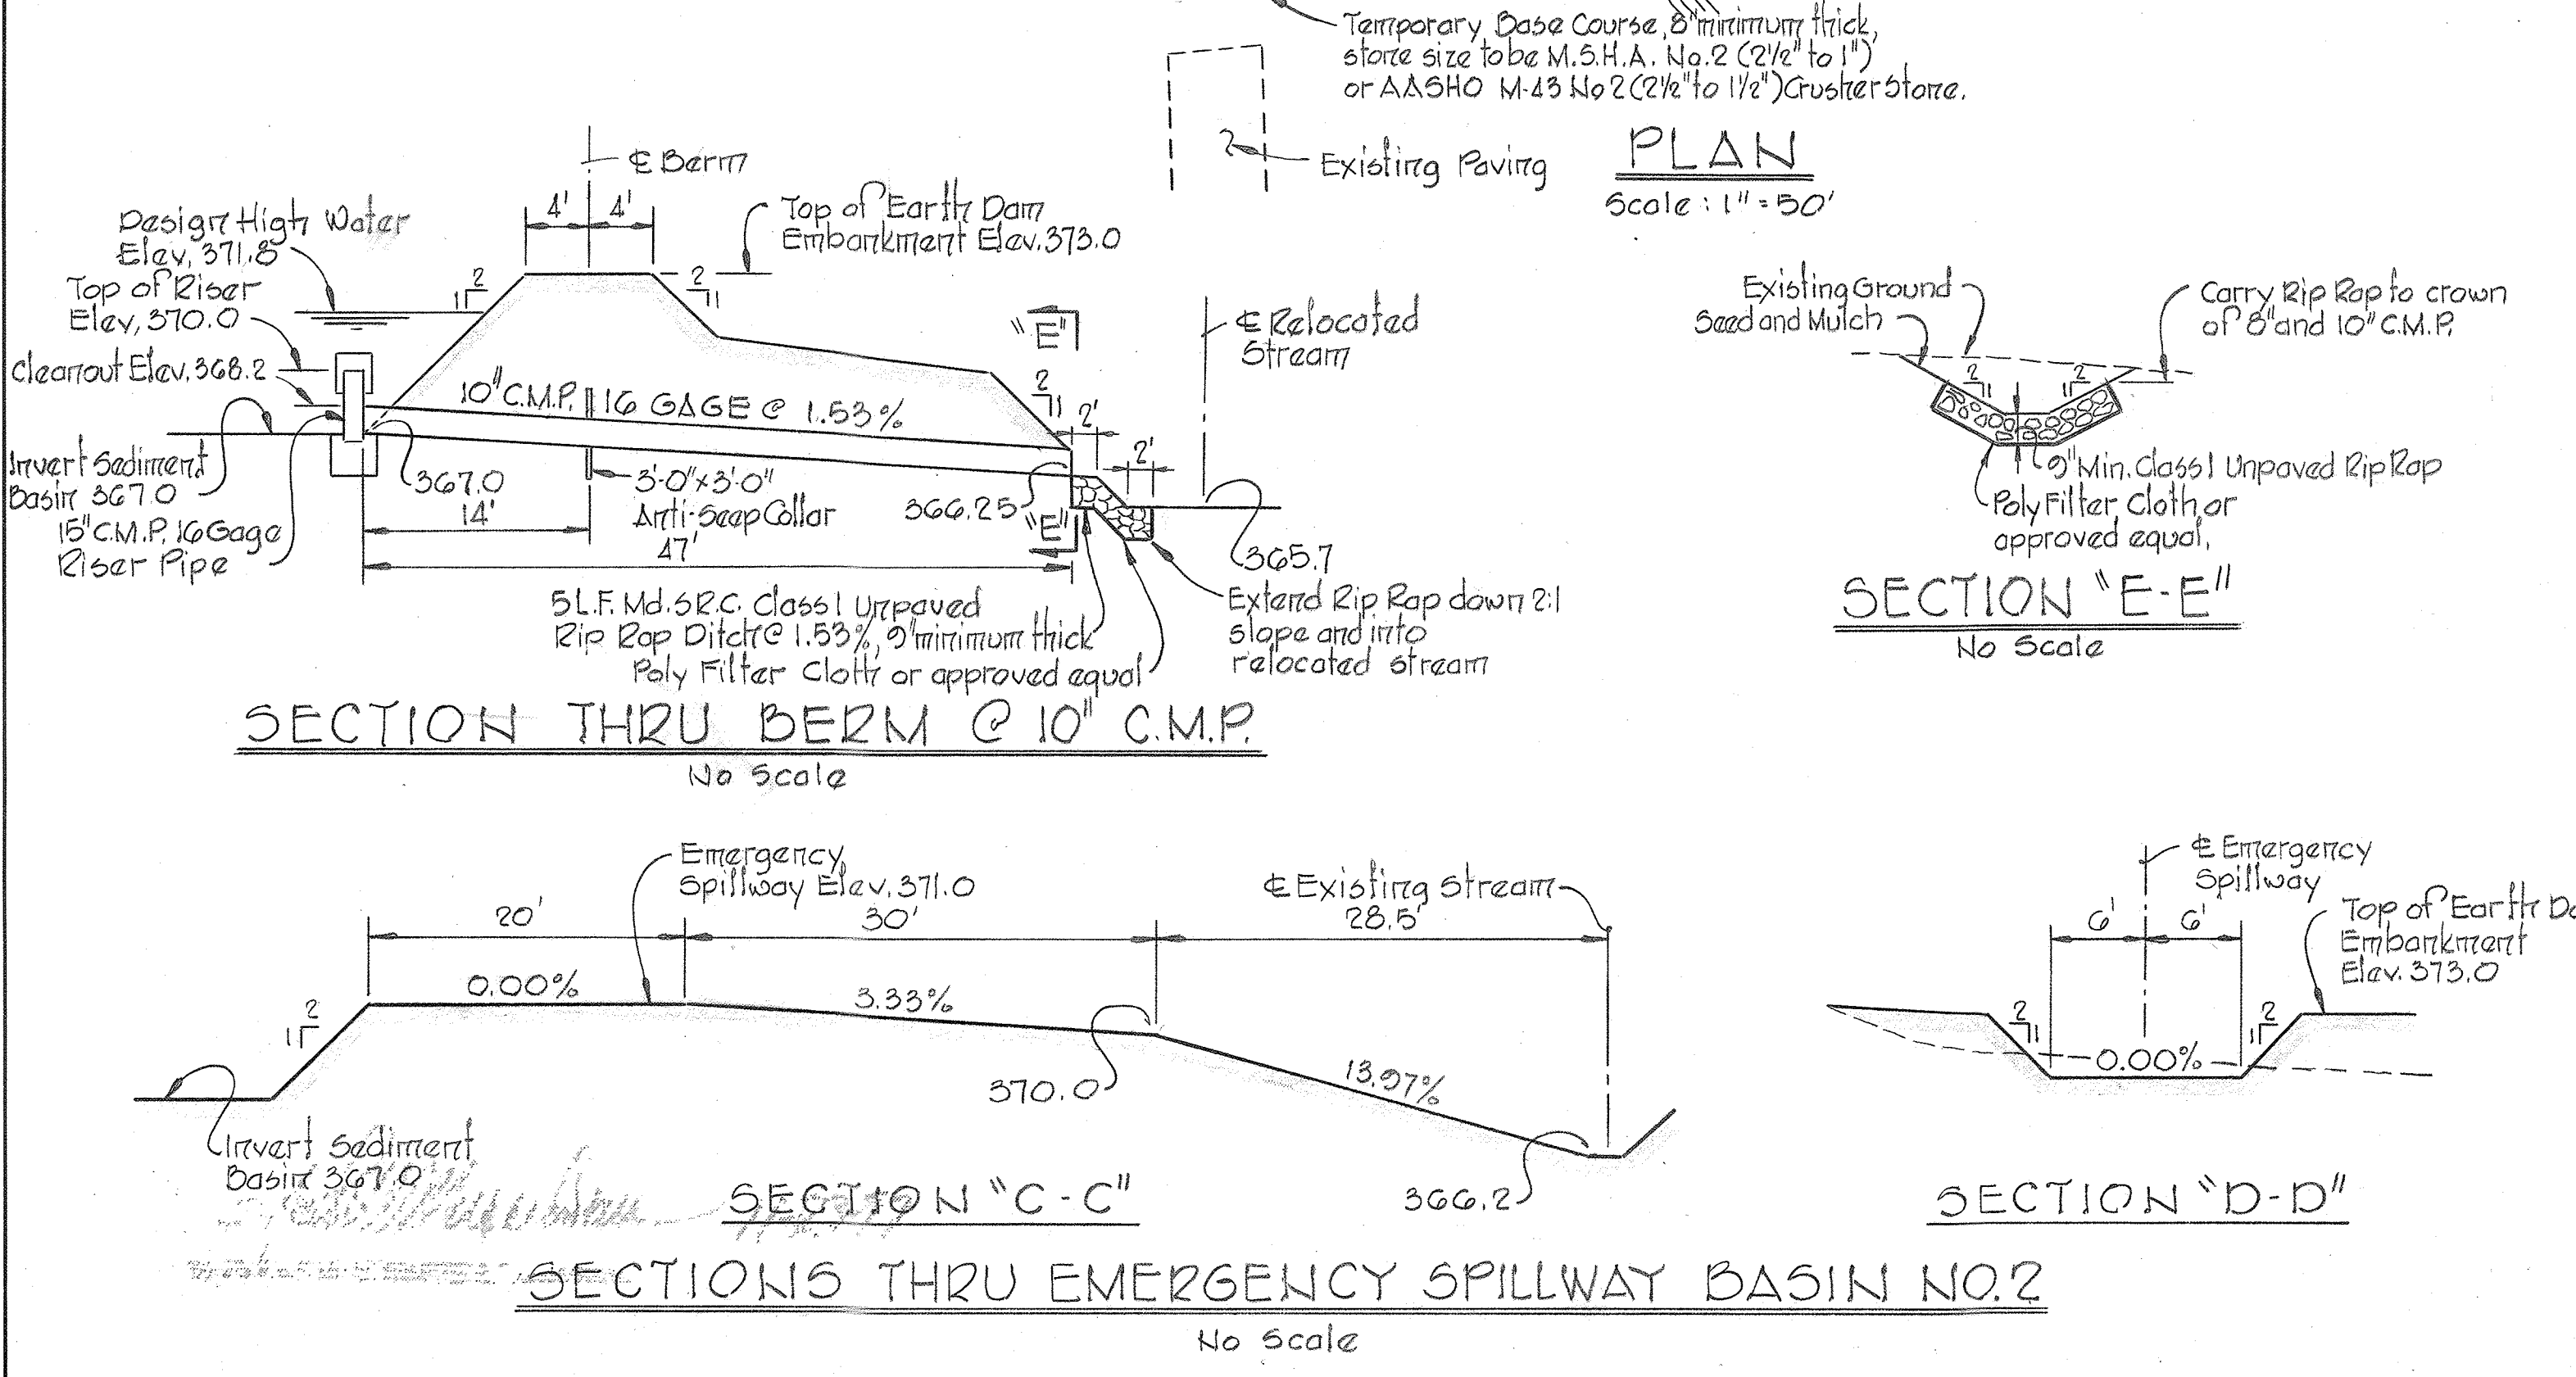 Temporary Base Course, 8" minimum thick,
stone size to be M.S.H.A. No.2 (2½" to 1")
or AASHO M-43 No 2 (2½" to 1½") Crusher Stone.
Existing Paving
PLAN
Scale : 1" = 50'
℄ Berm
4' 4'
Top of Earth Dam
Embankment Elev. 373.0
Design High Water
Elev. 371.8
Top of Riser
Elev. 370.0
Cleanout Elev. 368.2
2
1
2
1
10" C.M.P. 16 GAGE @ 1.53%
"E"
℄ Relocated
Stream
2
1
2'
2'
Invert Sediment
Basin 367.0
15" C.M.P. 16 Gage
Riser Pipe
367.0
14'
3'-0" x 3'-0"
Anti-Seep Collar
47'
366.25
"E"
365.7
5 L.F. Md. S.R.C. Class I Unpaved
Rip Rap Ditch @ 1.53%, 9" minimum thick
Poly Filter Cloth or approved equal
Extend Rip Rap down 2:1
slope and into
relocated stream
SECTION THRU BERM @ 10" C.M.P.
No Scale
Existing Ground
Seed and Mulch
Carry Rip Rap to crown
of 8" and 10" C.M.P.
2
1
2
1
9" Min. Class I Unpaved Rip Rap
Poly Filter Cloth or
approved equal.
SECTION "E-E"
No Scale
Emergency
Spillway Elev. 371.0
℄ Existing Stream
20' 30' 28.5'
0.00% 3.33%
2
1
370.0
13.97%
366.2
Invert Sediment
Basin 367.0
SECTION "C-C"
℄ Emergency
Spillway
6' 6'
Top of Earth
Embankment
Elev. 373.0
2
1
2
1
0.00%
SECTION "D-D"
SECTIONS THRU EMERGENCY SPILLWAY BASIN NO. 2
No Scale